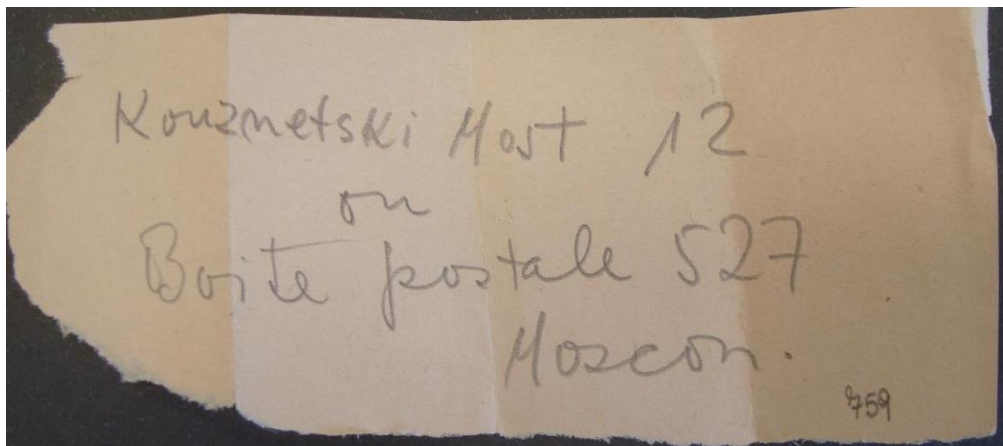 Kouznetski Most 12
ou
Boite postale 527
Moscou.
759